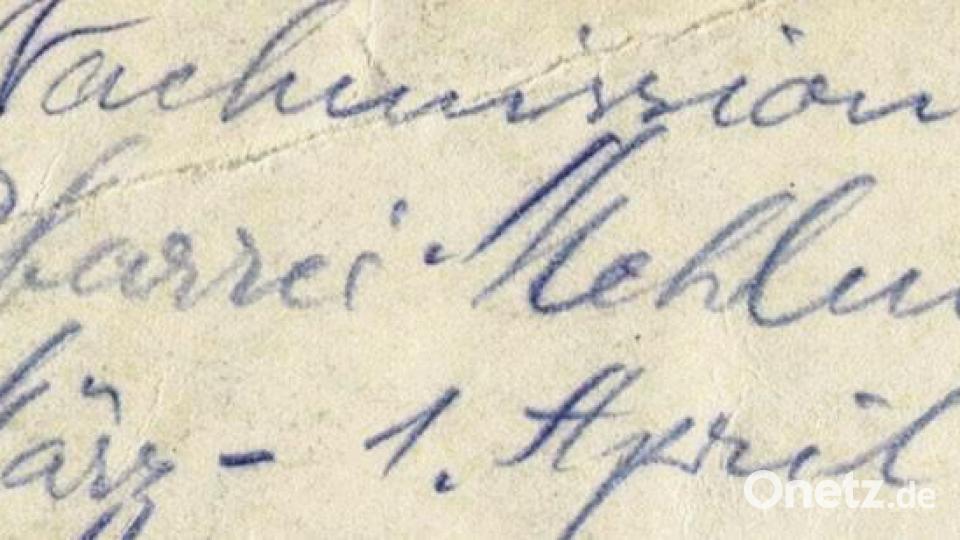 Nachmission
Pfarrei Mehlm
März - 1. April
Onetz.de